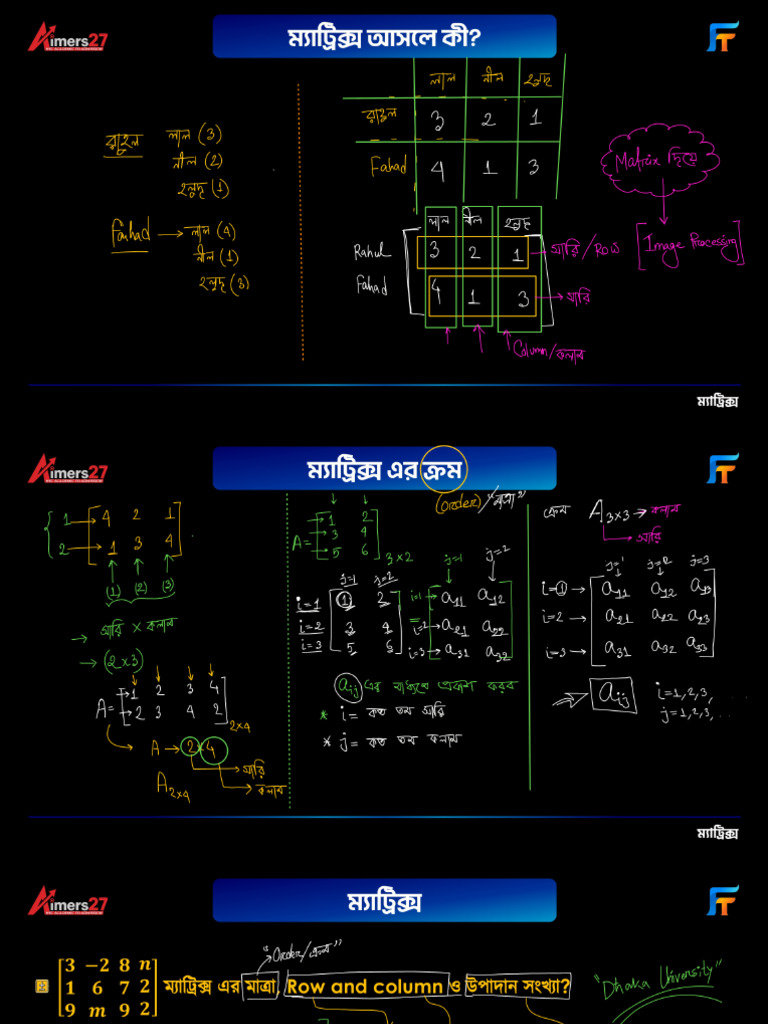 Aimers27
ম্যাট্রিক্স আসলে কী?
FT
রাহুল লাল (3)
নীল (2)
হলুদ (1)
Fahad → লাল (4)
নীল (1)
হলুদ (3)
লাল নীল হলুদ
রাহুল 3 2 1
Fahad 4 1 3
Matrix দিয়ে
[Image Processing]
লাল নীল হলুদ
Rahul 3 2 1 → সারি/Row
Fahad 4 1 3 → সারি
Column/কলাম
ম্যাট্রিক্স
Aimers27
ম্যাট্রিক্স এর ক্রম
FT
(Order)/"মাত্রা"
1 → 4 2 1
2 → 1 3 4
(1) (2) (3)
→ সারি × কলাম
→ (2×3)
A = 1 2 3 4
2 3 4 2
2×4
A → 2×4
→ সারি
A2×4 → কলাম
A = 1 2
3 4
5 6
3×2
j=1 j=2
i=1 1 2
i=2 3 4
i=3 5 6
j=1 j=2
i=1 → a11 a12
i=2 → a21 a22
i=3 → a31 a32
aij এর মাধ্যমে প্রকাশ করব
* i = কত তম সারি
* j = কত তম কলাম
ক্রম A3×3 → কলাম
→ সারি
j=1 j=2 j=3
i=1 → a11 a12 a13
i=2 → a21 a22 a23
i=3 → a31 a32 a33
aij i=1,2,3, ....
j=1,2,3,...
ম্যাট্রিক্স
Aimers27
ম্যাট্রিক্স
FT
"Order/ক্রম"
3 −2 8 n
1 6 7 2 ম্যাট্রিক্স এর মাত্রা, Row and column ও উপাদান সংখ্যা?
9 m 9 2
"Dhaka University"